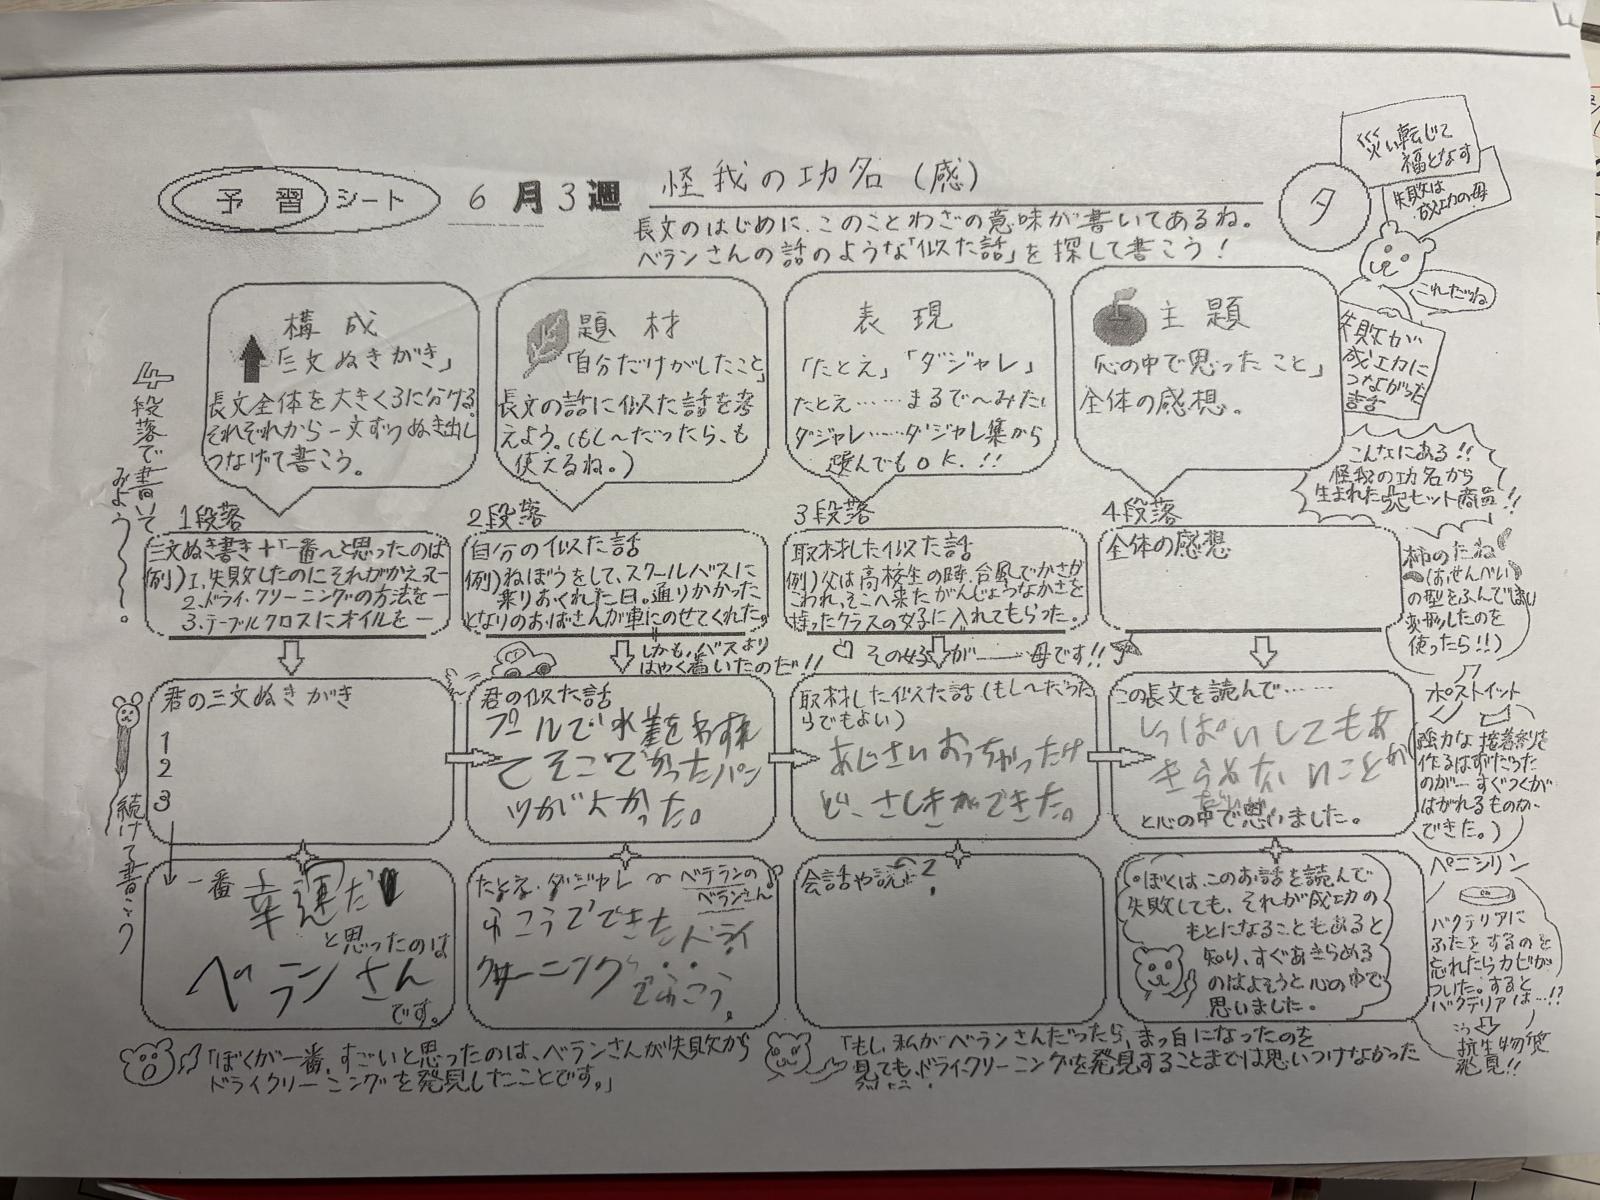 予習シート 6月3週 怪我の功名(感)
夕
長文のはじめに、このことわざの意味が書いてあるね。
ベランさんの話のような「似た話」を探して書こう!
災い転じて
福となす
失敗は
成功の母
これだね
失敗が
成功に
つながった
4段落で書いて
みよう〜〜。
構成
「三文ぬきがき」
長文全体を大きく3に分ける。
それぞれから一文ずつぬき出し
つなげて書こう。
題材
「自分だけがしたこと」
長文の話に似た話を考
えよう。(もし〜だったら、も
使えるね。)
表現
「たとえ」「ダジャレ」
たとえ……まるで〜みたい
ダジャレ……ダジャレ集から
選んでもOK.!!
主題
「心の中で思ったこと」
全体の感想。
こんなにある!!
怪我の功名から
生まれた㊙ヒット商品!!
1段落
三文ぬき書き+「一番〜と思ったのは
例)1.失敗したのにそれがかえって一
2.ドライ・クリーニングの方法を一
3.テーブルクロスにオイルを一
2段落
自分の似た話
例)ねぼうをして、スクールバスに
乗りおくれた日。通りかかった
となりのおばさんが車にのせてくれた。
しかも、バスより
はやく着いたのだ!!
3段落
取材した似た話
例)父は高校生の時、台風でかさが
こわれ、そこへ来たがんじょうなかさを
持ったクラスの女子に入れてもらった。
その女子が——母です!!
4段落
全体の感想
柿のたね
(おせんべい
の型をふんで
変形したのを
使ったら!!)
続けて書こう
君の三文ぬきがき
1
2
3
君の似た話
プールで水着をわすれ
てそこでかったパン
ツがよかった。
取材した似た話(もし〜だった
らでもよい)
あじさいおっちゃったけ
ど、さしきができた。
この長文を読んで……
しっぱいしてもあ
きらめないことが
だいじ
と心の中で思いました。
ポストイット
(強力な接着剤を
作るはずだった
のが…すぐつくが
はがれるものが
できた。)
一番
幸運だ
と思ったのは
ベランさん
です。
たとえ・ダジャレ〜ベテランの
ベランさん
ふこうでできたドライ
クリーニング
でふこう。
会話や説?
・ぼくは、このお話を読んで
失敗しても、それが成功の
もとになることもあると
知り、すぐあきらめる
のはよそうと心の中で
思いました。
ペニシリン
バクテリアに
ふたをするのを
忘れたらカビが
ついた。すると
バクテリアは…!?
抗生物質
発見!!
「ぼくが一番、すごいと思ったのは、ベランさんが失敗から
ドライクリーニングを発見したことです。」
「もし、私がベランさんだったら、まっ白になったのを
見ても、ドライクリーニングを発見することまでは思いつけなかった